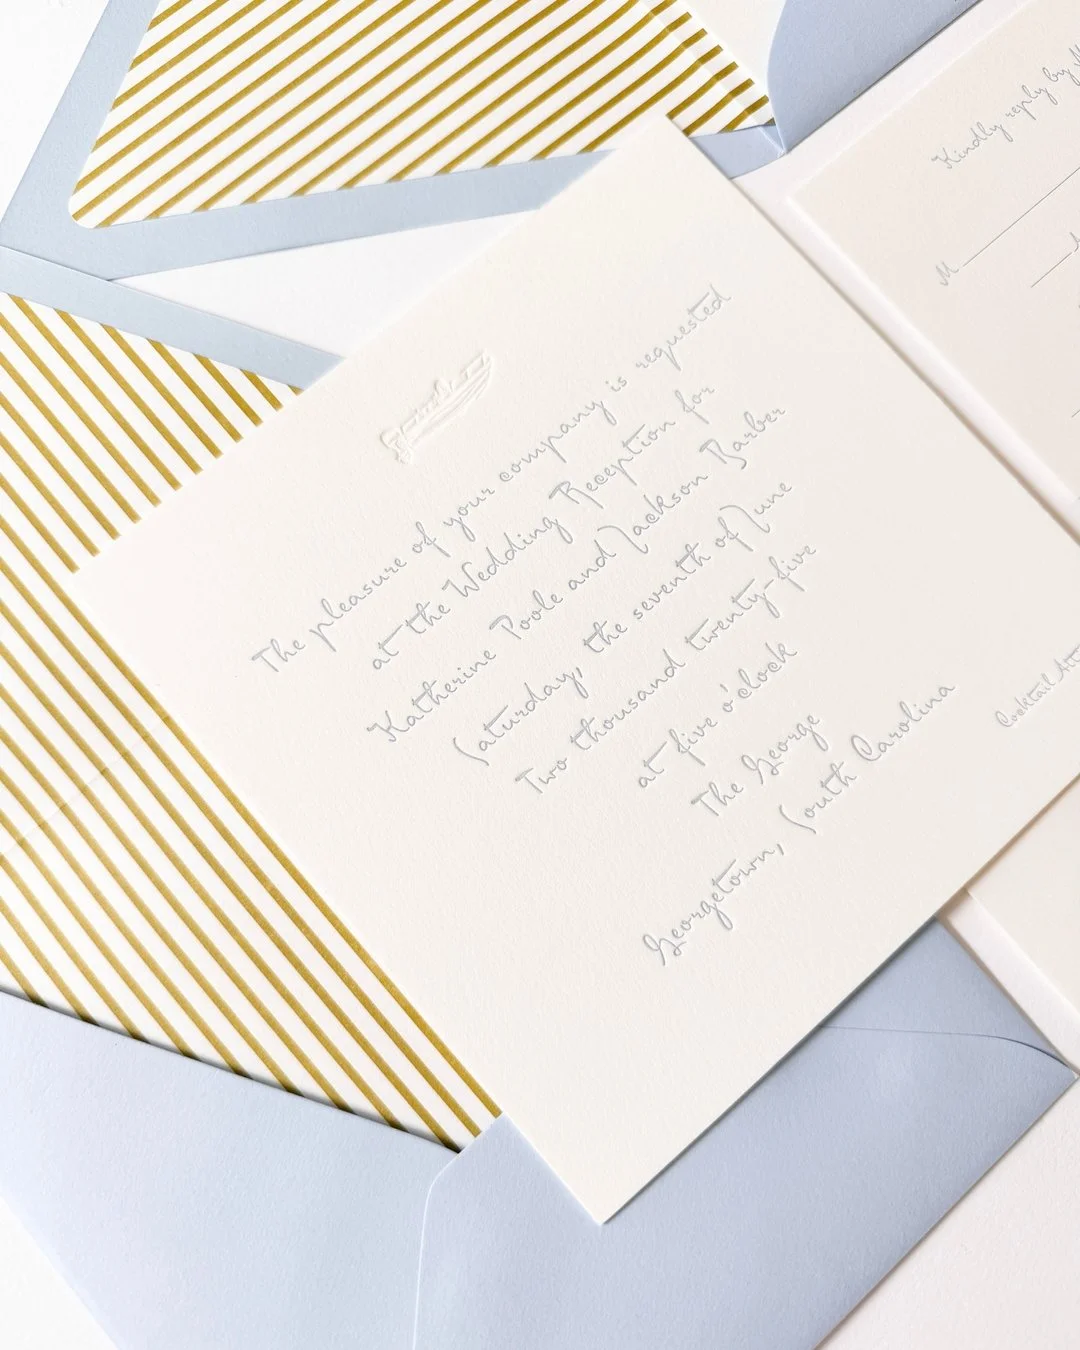 The pleasure of your company is requested
at the Wedding Reception for
Katherine Poole and Jackson Barber
Saturday, the seventh of June
Two thousand twenty-five
at five o'clock
The George
Georgetown, South Carolina
Kindly reply by
M
Cocktail